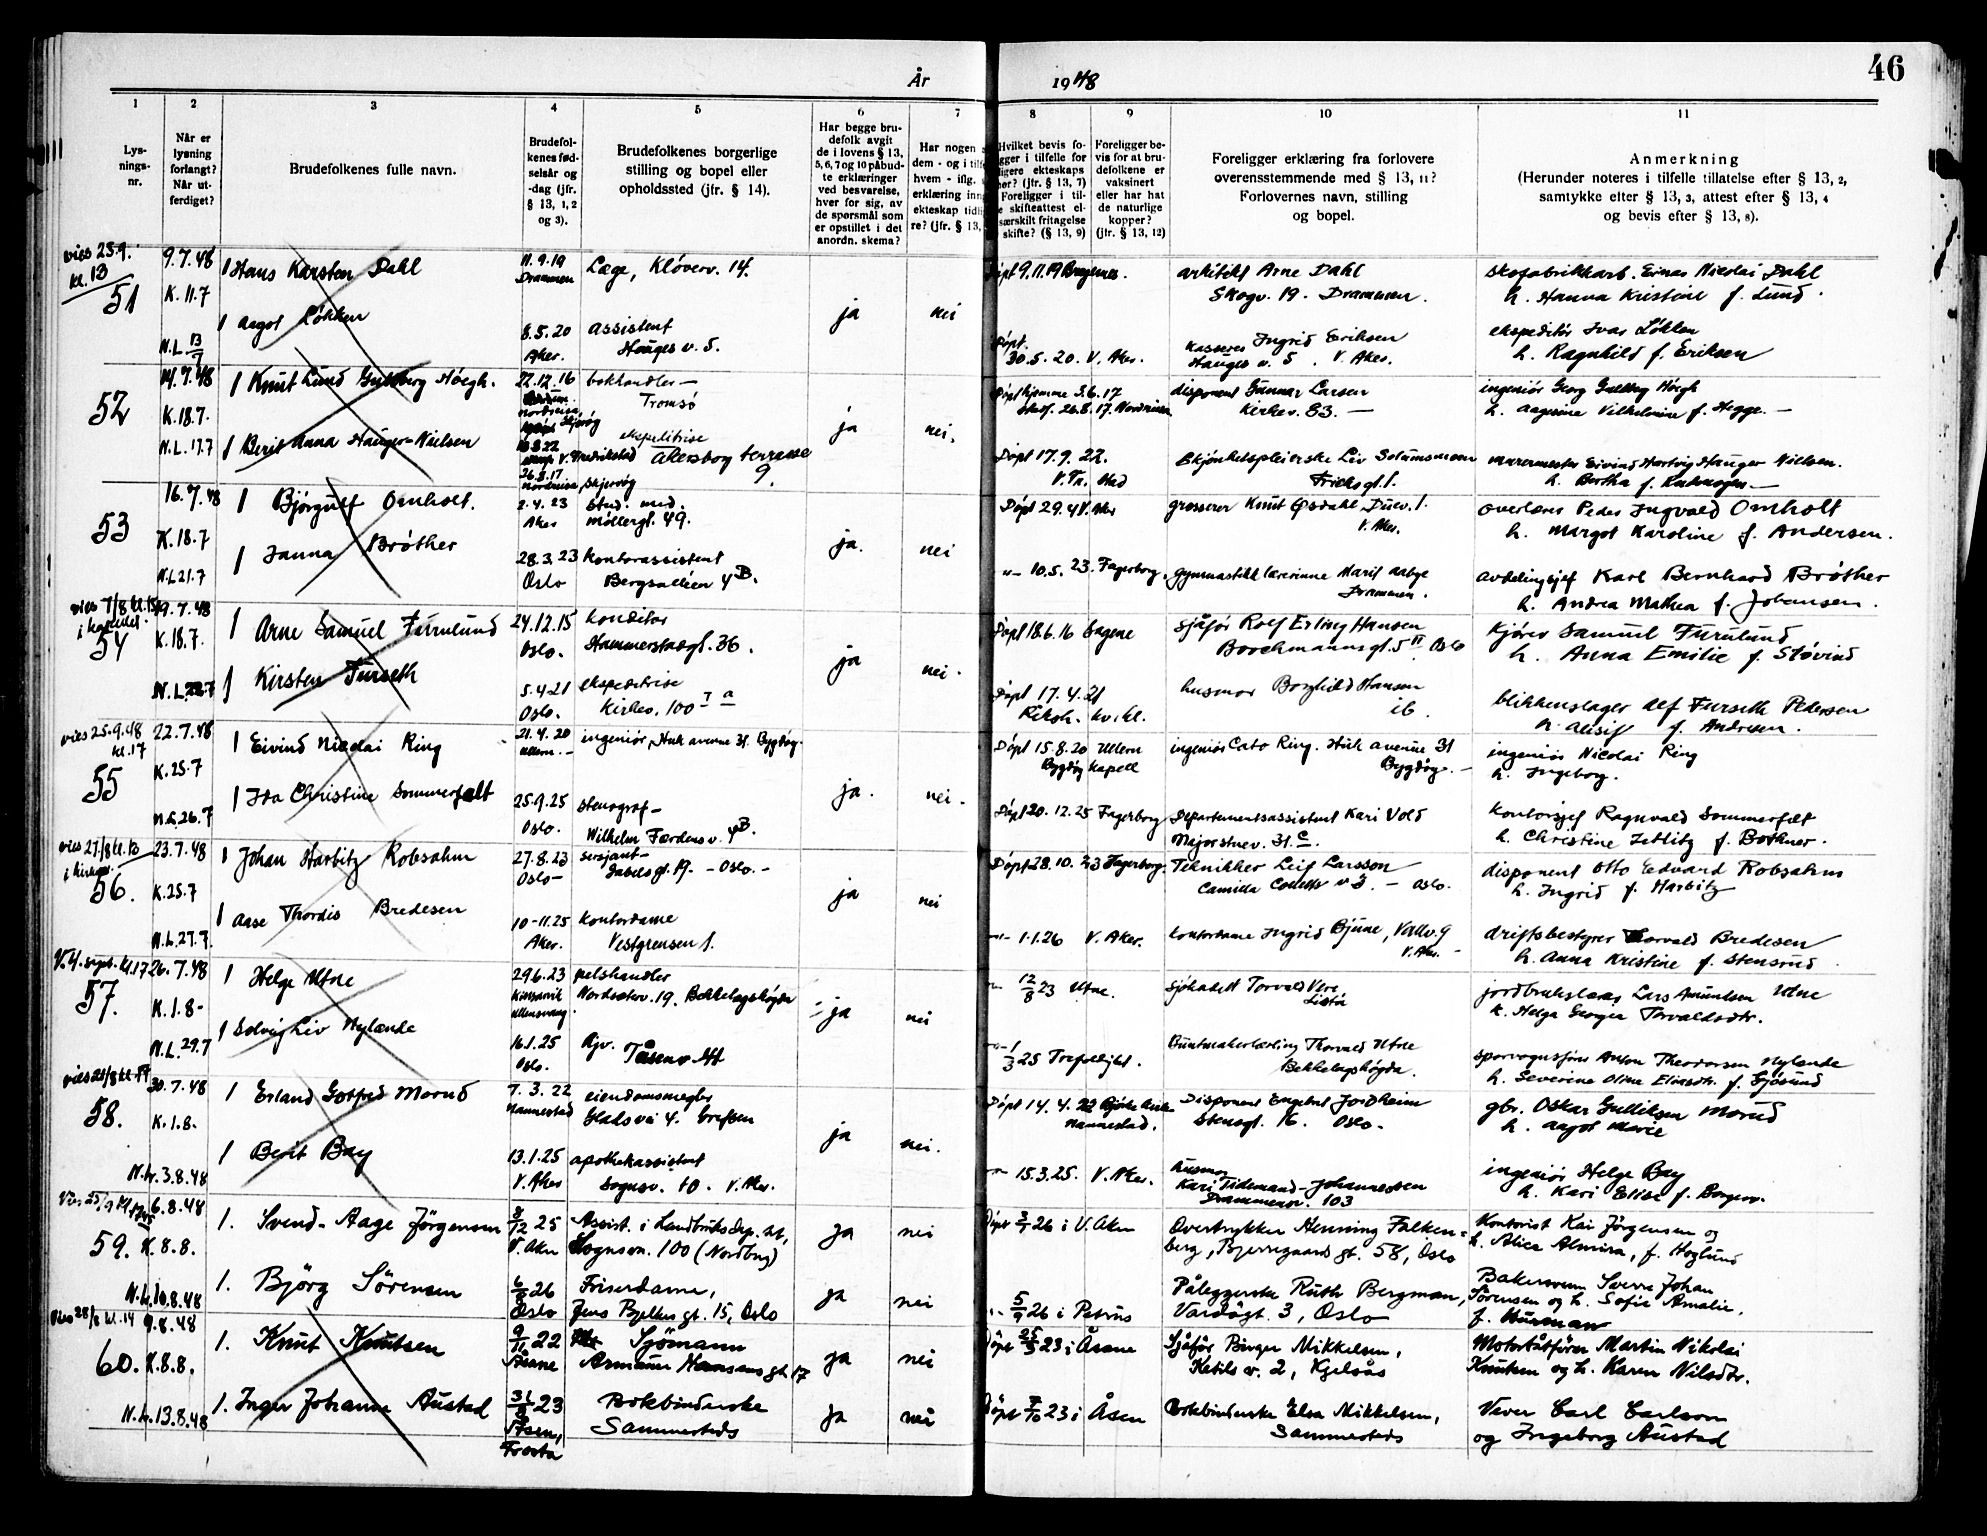 År 1948
46
1 2 3 4 5 6 7 8 9 10 11
Lys-
nings-
nr.
Når er
lysning
forlangt?
Når ut-
ferdiget?
Brudefolkenes fulle navn.
Brudefol-
kenes fød-
selsår og
-dag (jfr.
§ 13, 1, 2
og 3).
Brudefolkenes borgerlige
stilling og bopel eller
opholdssted (jfr. § 14).
Har begge bru-
defolk avgit
de i lovens § 13,
5, 6, 7 og 10 påbud-
te erklæringer
ved besvarelse,
hver for sig, av
de spørsmål som
er opstillet i det
anordn. skema?
Har nogen
dem - og i tilf
hvem - iflg.
erklæring inn
ekteskap tidl
re? (jfr. § 13,
Hvilket bevis fo-
gger i tilfelle for
ligere ekteskaps
hør? (jfr. § 13, 7)
Foreligger i til-
e skifteattest el-
særskilt fritagelse
skifte? (§ 13, 9)
Foreligger be-
vis for at bru-
defolkene er
vaksinert
eller har hat
de naturlige
kopper?
(jfr. § 13, 12)
Foreligger erklæring fra forlovere
overensstemmende med § 13, 11?
Forlovernes navn, stilling
og bopel.
Anmerkning
(Herunder noteres i tilfelle tillatelse efter § 13, 2,
samtykke efter § 13, 3, attest efter § 13, 4
og bevis efter § 13, 8).
vies 25.9.
kl. 13
51
9.7.48
K. 11.7
N.L. 13/7
1 Hans Karsten Dahl
11.9.19
Drammen
Læge, Kløverv. 14.
ja
nei
Døpt 9.11.19 Bragernes.
arkitekt Arne Dahl
Skogv. 19. Drammen.
skofabrikkarb. Einar Nicolai Dahl
h. Hanna Kristine f. Lund.
1 Aagot Løkken
8.5.20
Aker.
assistent
Hauges v. 5.
Døpt.
30.5.20. V. Aker.
kasserer Ingrid Eriksen
Hauges v. 5. V. Aker.
ekspeditør Ivar Løkken
h. Ragnhild f. Eriksen
52
14.7.48
K. 18.7.
N.L. 17.7
1 Knut Lund Guldberg Høegh.
22.12.16
bokhandler —
Tromsø
ja
nei.
Døpt hjemme 3.6.17
stadf. 26.8.17. Nordreisa
disponent Gunnar Larsen
Kirkev. 83. —
ingeniør Georg Guldberg Høegh
h. Aagerine Vilhelmine f. Hegge. —
1 Berit Anna Hauger-Nielsen
V. Fredrikstad
26.8.17
Nordreisa, Skjervøy
ekspeditrise
Akersborg terrasse
9.
Døpt 17.9.22.
Liv
murermester Eivind Hartvig Hauger Nielsen.
53
16.7.48
K. 18.7
N.L. 21.7
1 Bjørgulf Omholt.
2.4.23
Aker
stud. med.
Møllergt. 49.
ja.
nei
Døpt 29.4 V. Aker
grosserer Knut Opsdahl, Duev. 1.
V. Aker.
overlærer Peder Ingvald Omholt
h. Margot Karoline f. Andersen.
1 Janna Brøther
28.3.23
Oslo
kontorassistent
Bergsalléen 4B.
"— 10.5.23. Fagerborg.
gymnastikklærerinne Marit Aabye
Drammen.
avdelingsjef Karl Bernhard Brøther
h. Andrea Mathea f. Johansen.
vies 7/8 kl. 15
i kapellet.
54
19.7.48
K. 18.7.
N.L. 22.7
1 Arne Samuel Furulund
24.12.15
Oslo.
konditor
Hammerstadgt. 36.
ja
nei.
Døpt 18.6.16 Sagene
sjåfør Rolf Erling Hansen
Borchmannsgt. 5 II Oslo
kjører Samuel Furulund
h. Anna Emilie f. Støvind
1 Kirsten Furseth
5.4.21
Oslo.
ekspeditrise
Kirkev. 100 I a
Døpt 17.4.21
Riksh. kv. kl.
husmor Borghild Hansen
ib.
blikkenslager Alf Furseth Pedersen
h. f. Andresen.
vies 25.9.48
kl. 17
55
22.7.48
K. 25.7
N.L. 26.7
1 Eivind Nicolai Ring
21.4.20
Ullern. —
ingeniør, Huk avenue 31. Bygdøy.
ja.
nei.
Døpt 15.8.20 Ullern
Bygdøy kapell
ingeniør Cato Ring. Huk avenue 31
Bygdøy. —
ingeniør Nicolai Ring
h. Ingeborg.
1 Ida Christine Sommerfelt
25.9.25
Oslo.
stenograf —
Wilhelm Færdens v. 4B.
Døpt 20.12.25 Fagerborg
Departementsassistent Kari Vold
Majorstuev. 31 c.
kontorsjef Ragnvald Sommerfelt
h. Christine f. Bothner.
vies 27/8 kl. 13
i kirken.
56.
23.7.48
K. 25.7
N.L. 27.7.
1 Johan Harbitz Robsahm
27.8.23
Oslo —
sersjant —
Gabelsgt. 19. — Oslo. —
ja
nei
Døpt 28.10.23 Fagerborg.
Tekniker Leif Larsson
Camilla Colletts v 3. — Oslo.
disponent Otto Edvard Robsahm
h. Ingrid f. Harbitz
1 Aase Thordis Bredesen
10-11.25
Aker.
kontordame
Vestgrensen 1.
—"— 1.1.26 V. Aker.
kontordame Ingrid Bjune, Vallv. 9
V. Aker. —
driftsbestyrer Torvald Bredesen
h. Anna Kristine f. Stensrud.
V. 4. sept. kl. 17
57.
26.7.48
K. 1.8 —
N.L. 29.7
1 Helge Utne
29.6.23
Kinsarvik
Ullensvang.
pelshandler
Nordseterv. 19. Bekkelagshøgda
ja
nei
12/8 23 Utne.
sjøkadett Torvald Vere
Lista
jordbrukslærer Lars Amundsen Utne
h. Helga Georgia Torvaldsdtr.
1 Solveig Liv Nylænde
16.1.25
Oslo.
Rgv.
1/3 25
Buntmakerlærling Thorvald Utne
Bekkelagshøgda.
Anton Theodorsen Nylænde
h. Severine Oline Eliasdtr. f. Gjøsund
58.
30.7.48
K. 1.8.
N.L. 3.8.48
1 Erland Gotfred Morud
7.3.22
Nannestad
eiendomsmegler
Gladsvei 4. Grefsen
ja
nei.
Døpt 14.4.22 Bjerke kirke
Nannestad.
Disponent Engebret Jordheim
Stensgt. 16. Oslo.
gbr. Oskar Gulliksen Morud
h. Aagot Marie
1 Berit Bay
13.1.25
V. Aker
apothekassistent
Sognsv. 10. V. Aker.
—"— 15.3.25. V. Aker.
Husmor
Kari Tidemand-Johannessen
Drammensv. 103
ingeniør Helge Bay
h. Kari Elise f. Borgerv.
59.
6.8.48
K. 8.8.
N.L. 10.8.48
1. Svend-Aage Jörgensen
8/12 25
V. Aker
Assist. i Landbruksdep.
Sognsvn. 100 (Nordberg)
ja
nei
Döpt 3/1 26 i V. Aker
Overtrykker Henning Falken-
berg, Bjerregaards gt. 58, Oslo
Kontorist Kai Jörgensen og
h. Alice Almira, f. Hoglund
1. Björg Sörensen
6/8 26
Oslo
Friserdame,
Jens Bjelkes gt. 15, Oslo
ja
nei
5/9 26 i Petrus
Påleggerske Ruth Bergman,
Vardögt. 3, Oslo
Bakersvenn Sverre Johan
Sörensen og h. Sofie Amalie,
f. Hurman
Vies 28/8 kl. 14
60.
9.8.48
K. 8.8.
N.L. 13.8.48
1. Knut Knutsen
9/11 22
Åsane
Sjömann
Armauer Hansens gt. 17
ja
nei
Döpt 25/3 23 i Åsane
Sjåför Birger Mikkelsen,
Ketils v. 2, Kjelsås
Motorbåtförer Martin Nikolai
Knutsen og h. Karen Nilsdtr.
1. Inger Johanne Austad
31/8 23
Åsen,
Frosta
Bokbinderske
Sammesteds
ja
nei
Döpt 7/10 23 i Åsen
Bokbinderske Elsa Mikkelsen,
Sammesteds
Vever Carl Carlson
og Ingeborg Austad